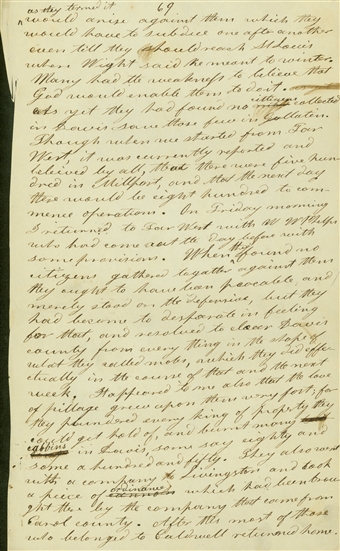 as they termed it 69
would arise against them which they
would have to subdue one after another
even till they should reach St Louis
where Wight said he meant to winter.
Many had the weakness to believe that
God would enable them to do it.
As yet they had found no citizens collected
in Daviss save those few in Gallatin.
Though when we started from Far
West, it was currently reported and
beleived by all, that there were five hun
dred in Millport, and that the next day
there would be eight hundred to com
mence operations. On Friday morning
I returned to Far West with W W Phelps
who had come out the day before with
some provisions. When they found no
citizens gathered togather against them
they ought to have been peacable, and
merely stood on the defensive, but they
had become to desparate in feeling
for that, and resolved to clear Daviss
county from every thing in the shape of
what they called mobs, which they did effe
ctually in the course of that and the next
week. It appeared to me also that the love
of pillage grew upon them very fast, for
they plundered every king of property they
could get hold of, and burnt many
cabbins in Daviss, some say eighty and
some a hundred and fifty. They also went
with a company to Livingston and took
a peice of ordinance which had been brou
ght there by the company that came from
Carol county. After this most of those
who belonged to Caldwell returned home.